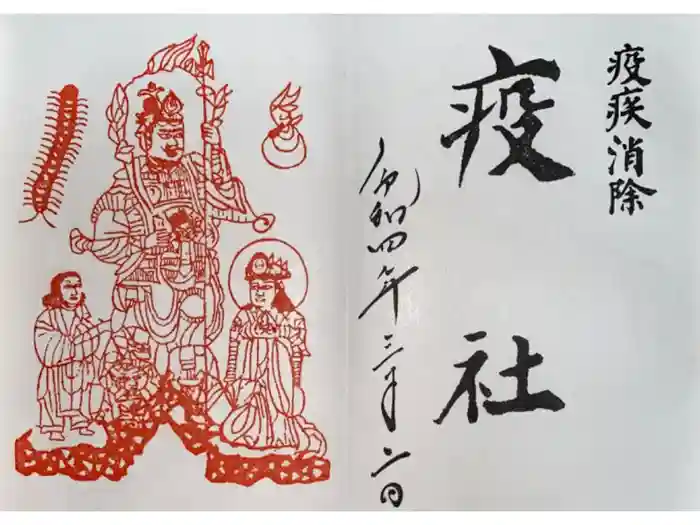 疫疾消除
疫社
令和四年三月六日